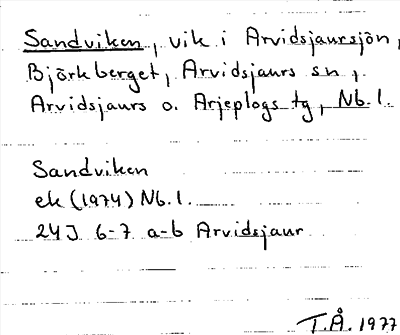 Sandviken, vik i Arvidsjaursjön,
Björkberget, Arvidsjaurs sn,
Arvidsjaurs o. Arjeplogs tg, Nb. l.
Sandviken
ek (1974) Nb. l.
24J 6-7 a-b Arvidsjaur
T.Å. 1977